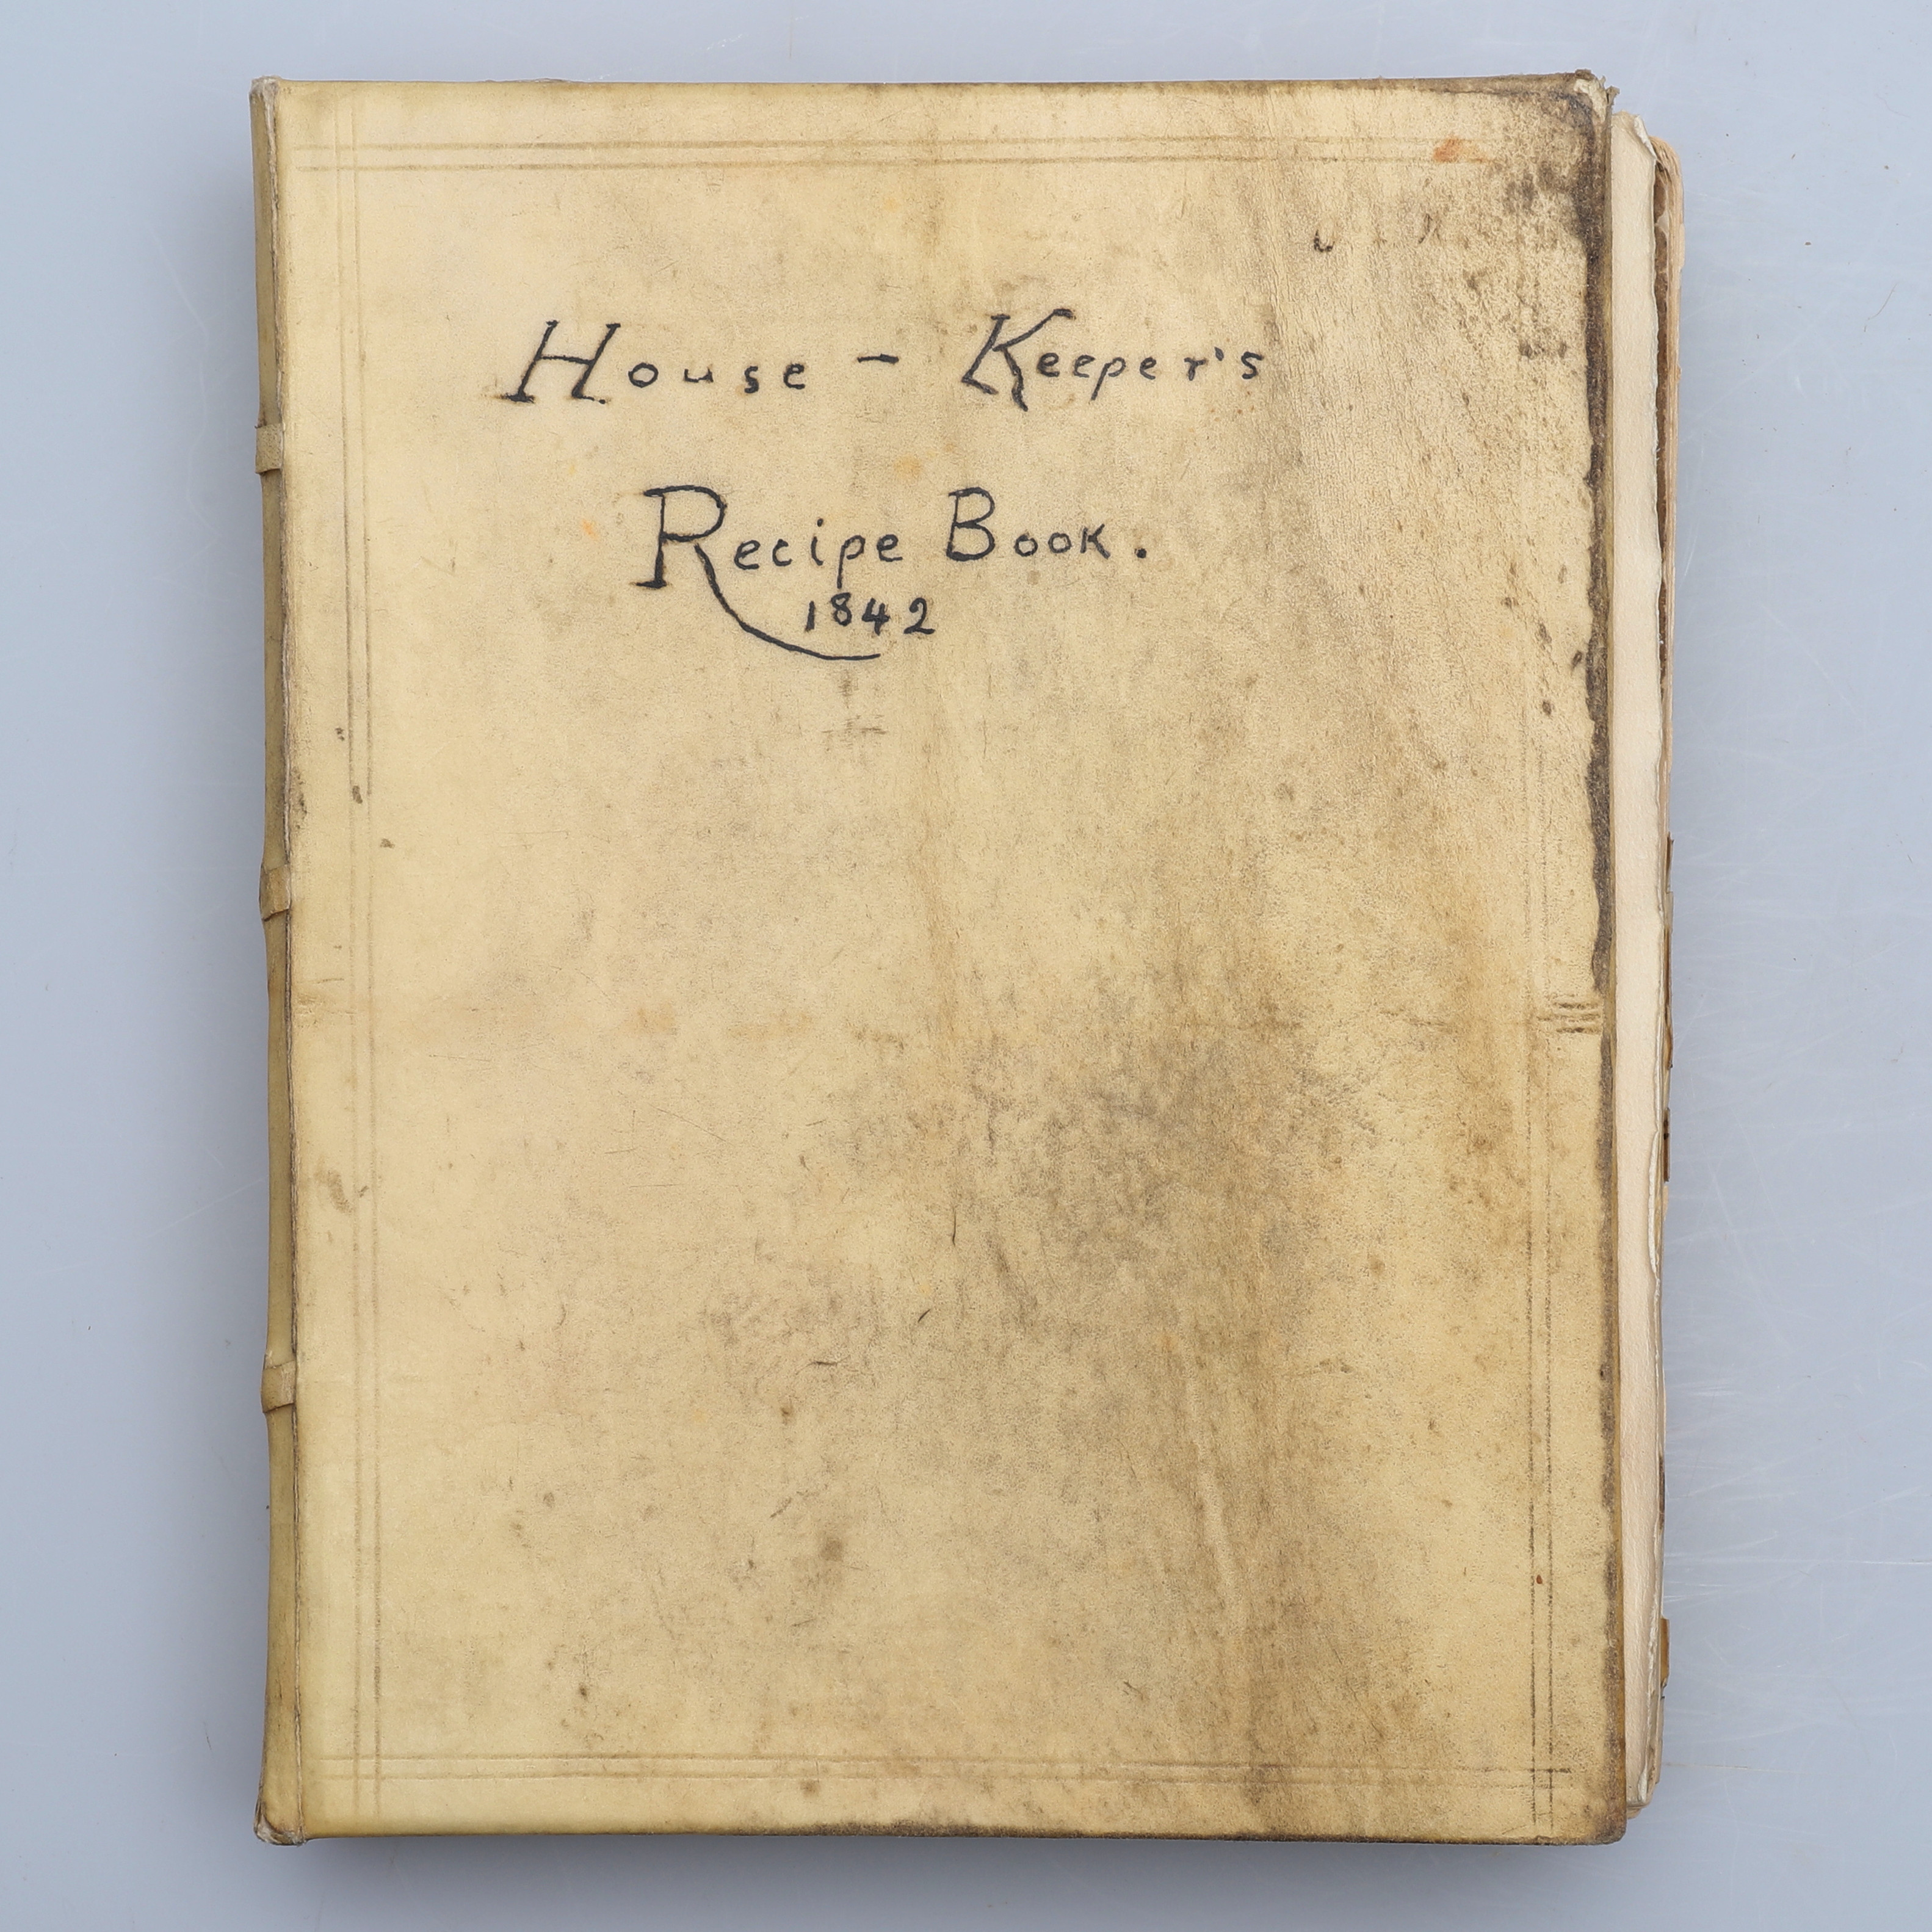 House - Keeper's
Recipe Book.
1842